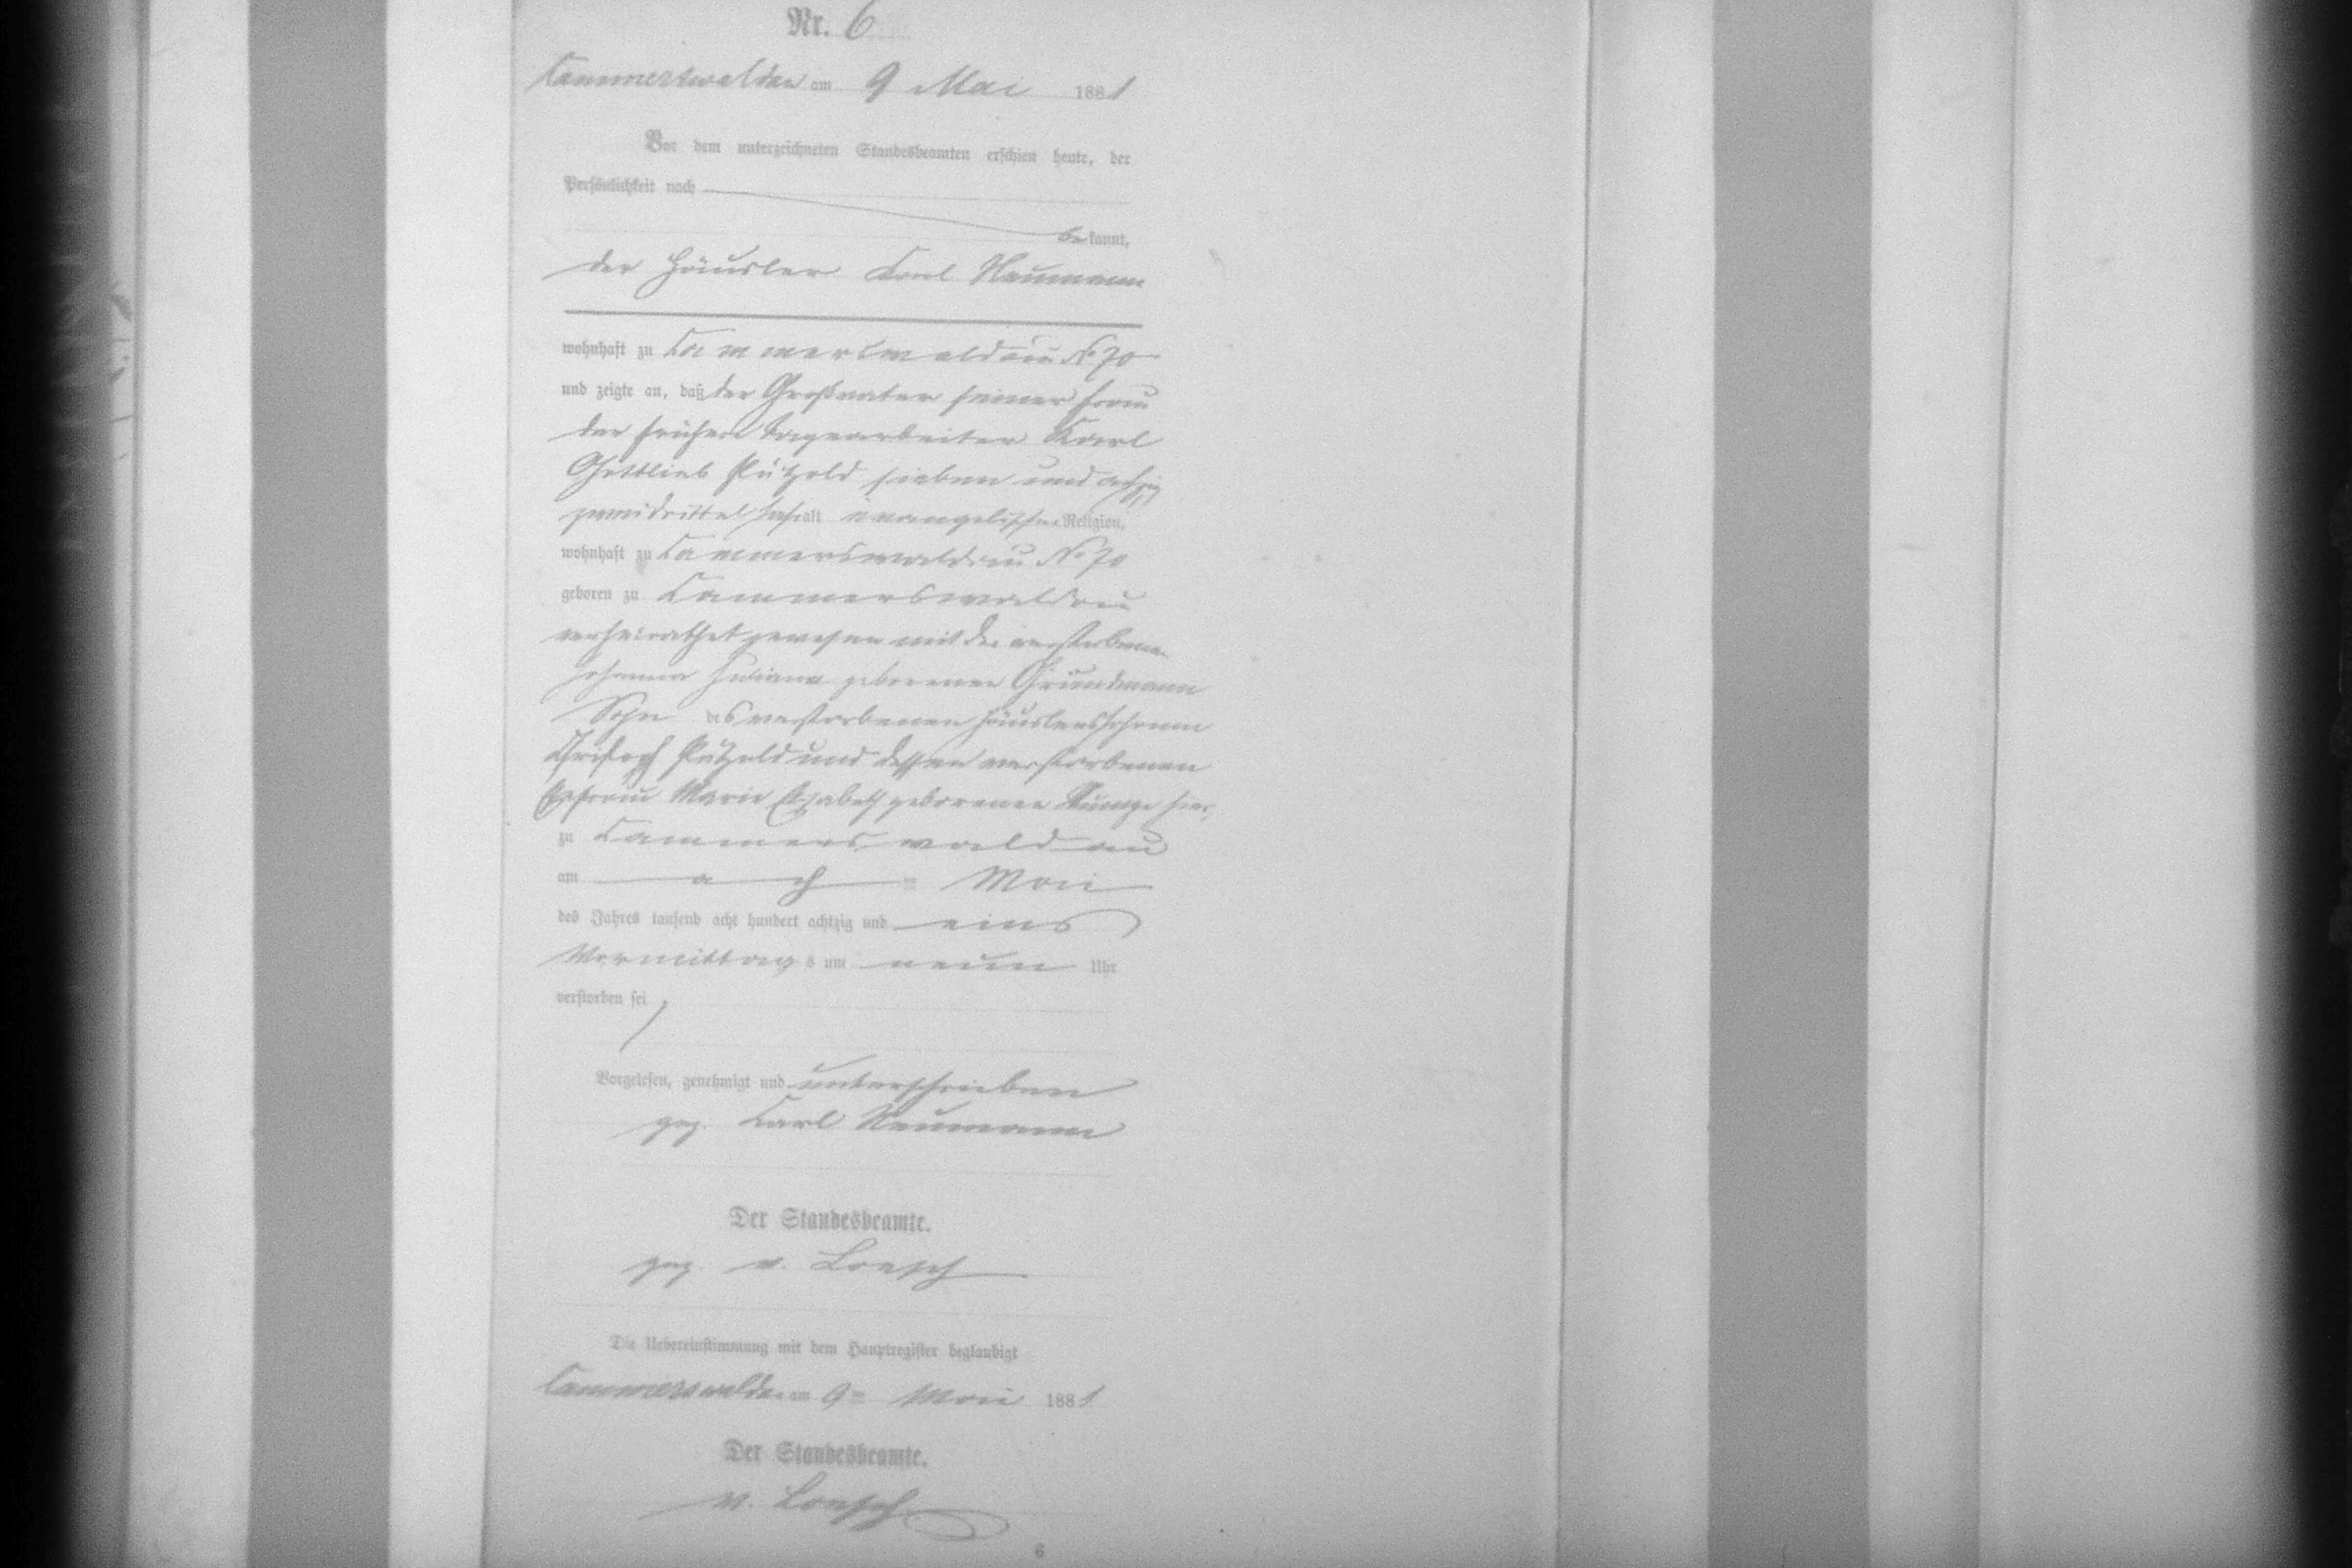 Nr. 6
Cammerswaldau am 9 Mai 1881
Vor dem unterzeichneten Standesbeamten erschien heute, der
Persönlichkeit nach
bekannt,
der Häusler Carl Neumann
wohnhaft zu Cammerswaldau No 70
und zeigte an, daß der Großvater seiner Frau
der frühere Tagearbeiter Karl
Gottlieb Pätzold sieben und achtzig
zweidrittel Jahr alt evangelischer Religion,
wohnhaft zu Cammerswaldau No 70
geboren zu Cammerswaldau
verheirathet gewesen mit der verstorbenen
Johanna Juliane geborenen Grundmann
Sohn des verstorbenen Häuslers Johann
Christoph Pätzold und dessen verstorbenen
Ehefrau Marie Elisabeth geborenen hier
zu Cammerswaldau
am acht Mai
des Jahres tausend acht hundert achtzig und eins
Vormittags um neun Uhr
verstorben sei
Vorgelesen, genehmigt und unterschrieben
gez. Carl Neumann
Der Standesbeamte.
gez. v. Loesch
Die Uebereinstimmung mit dem Hauptregister beglaubigt
Cammerswaldau am 9ten Mai 1881
Der Standesbeamte.
v. Loesch
6